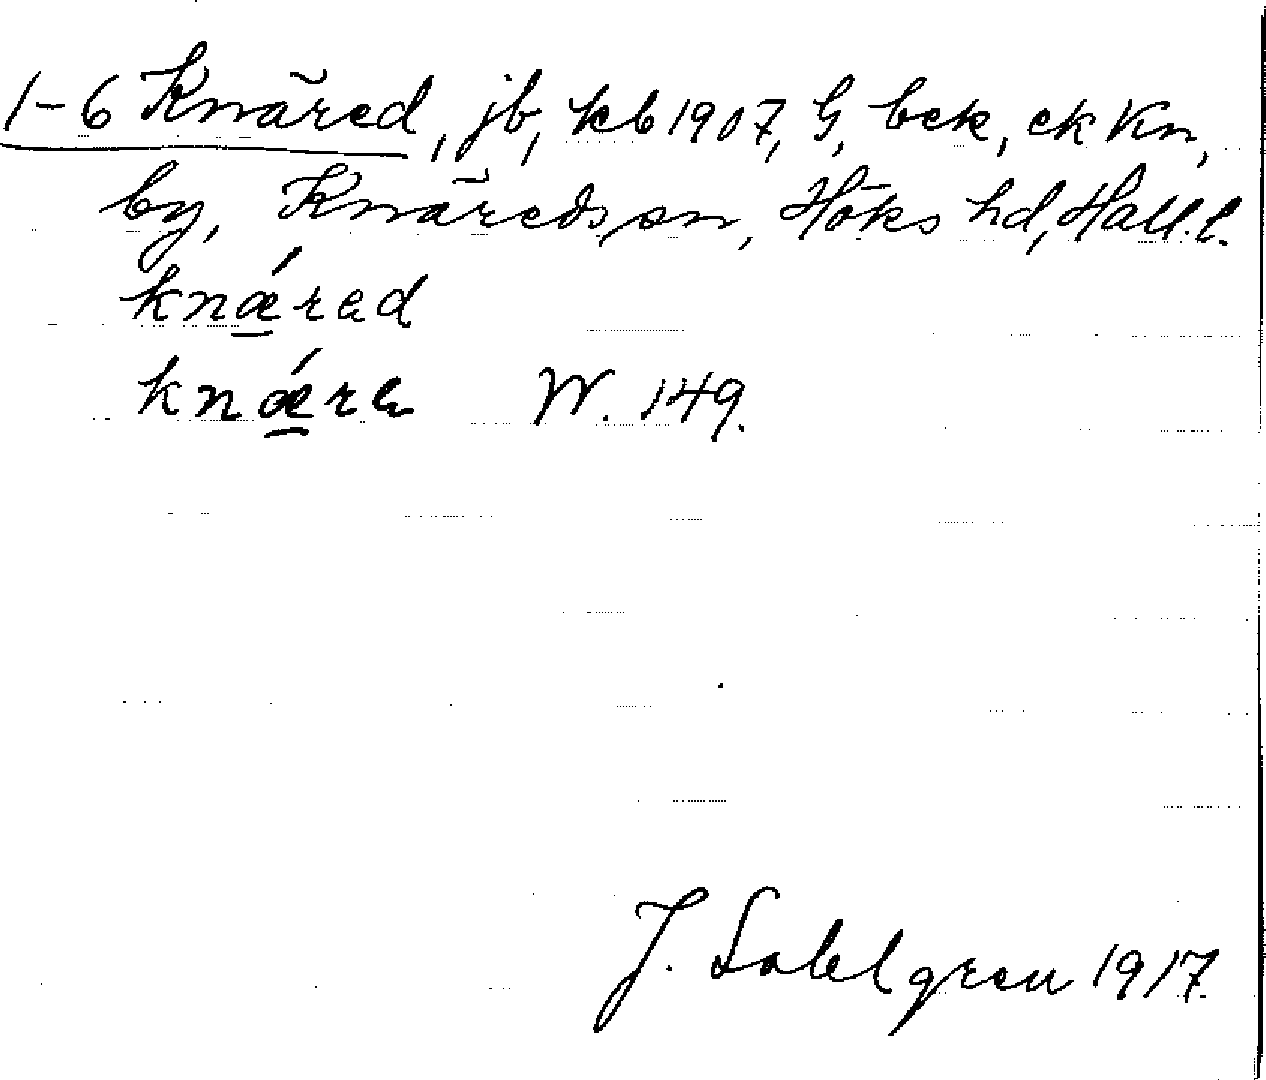 1-6 Knäred, jb, kb 1907, G, bek, ek Kn,
by, Knäreds sn, Höks hd, Hall. l.
knǽ̱rəd
knǽ̱rə W. 149.
J. Sahlgren 1917.